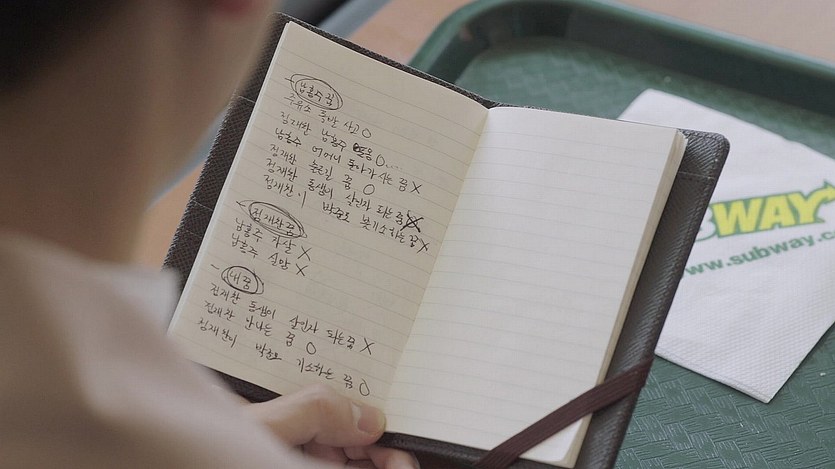 남홍주 꿈
주유소 폭발 사고 O
정재찬 남홍주 포옹 O...
남홍주 어머니 돌아가시는 꿈 X
정재찬 눈길 꿈 O
정재찬 동생이 살인자 되는 꿈 X
정재찬이 박준모 불기소하는 꿈 X
정재찬 꿈
남홍주 자살 X
남홍주 실망 X
내 꿈
정재찬 동생이 살인자 되는 꿈 X
정재찬 만나는 꿈 O
정재찬이 박준모 기소하는 꿈 O
SUBWAY
www.subway.c